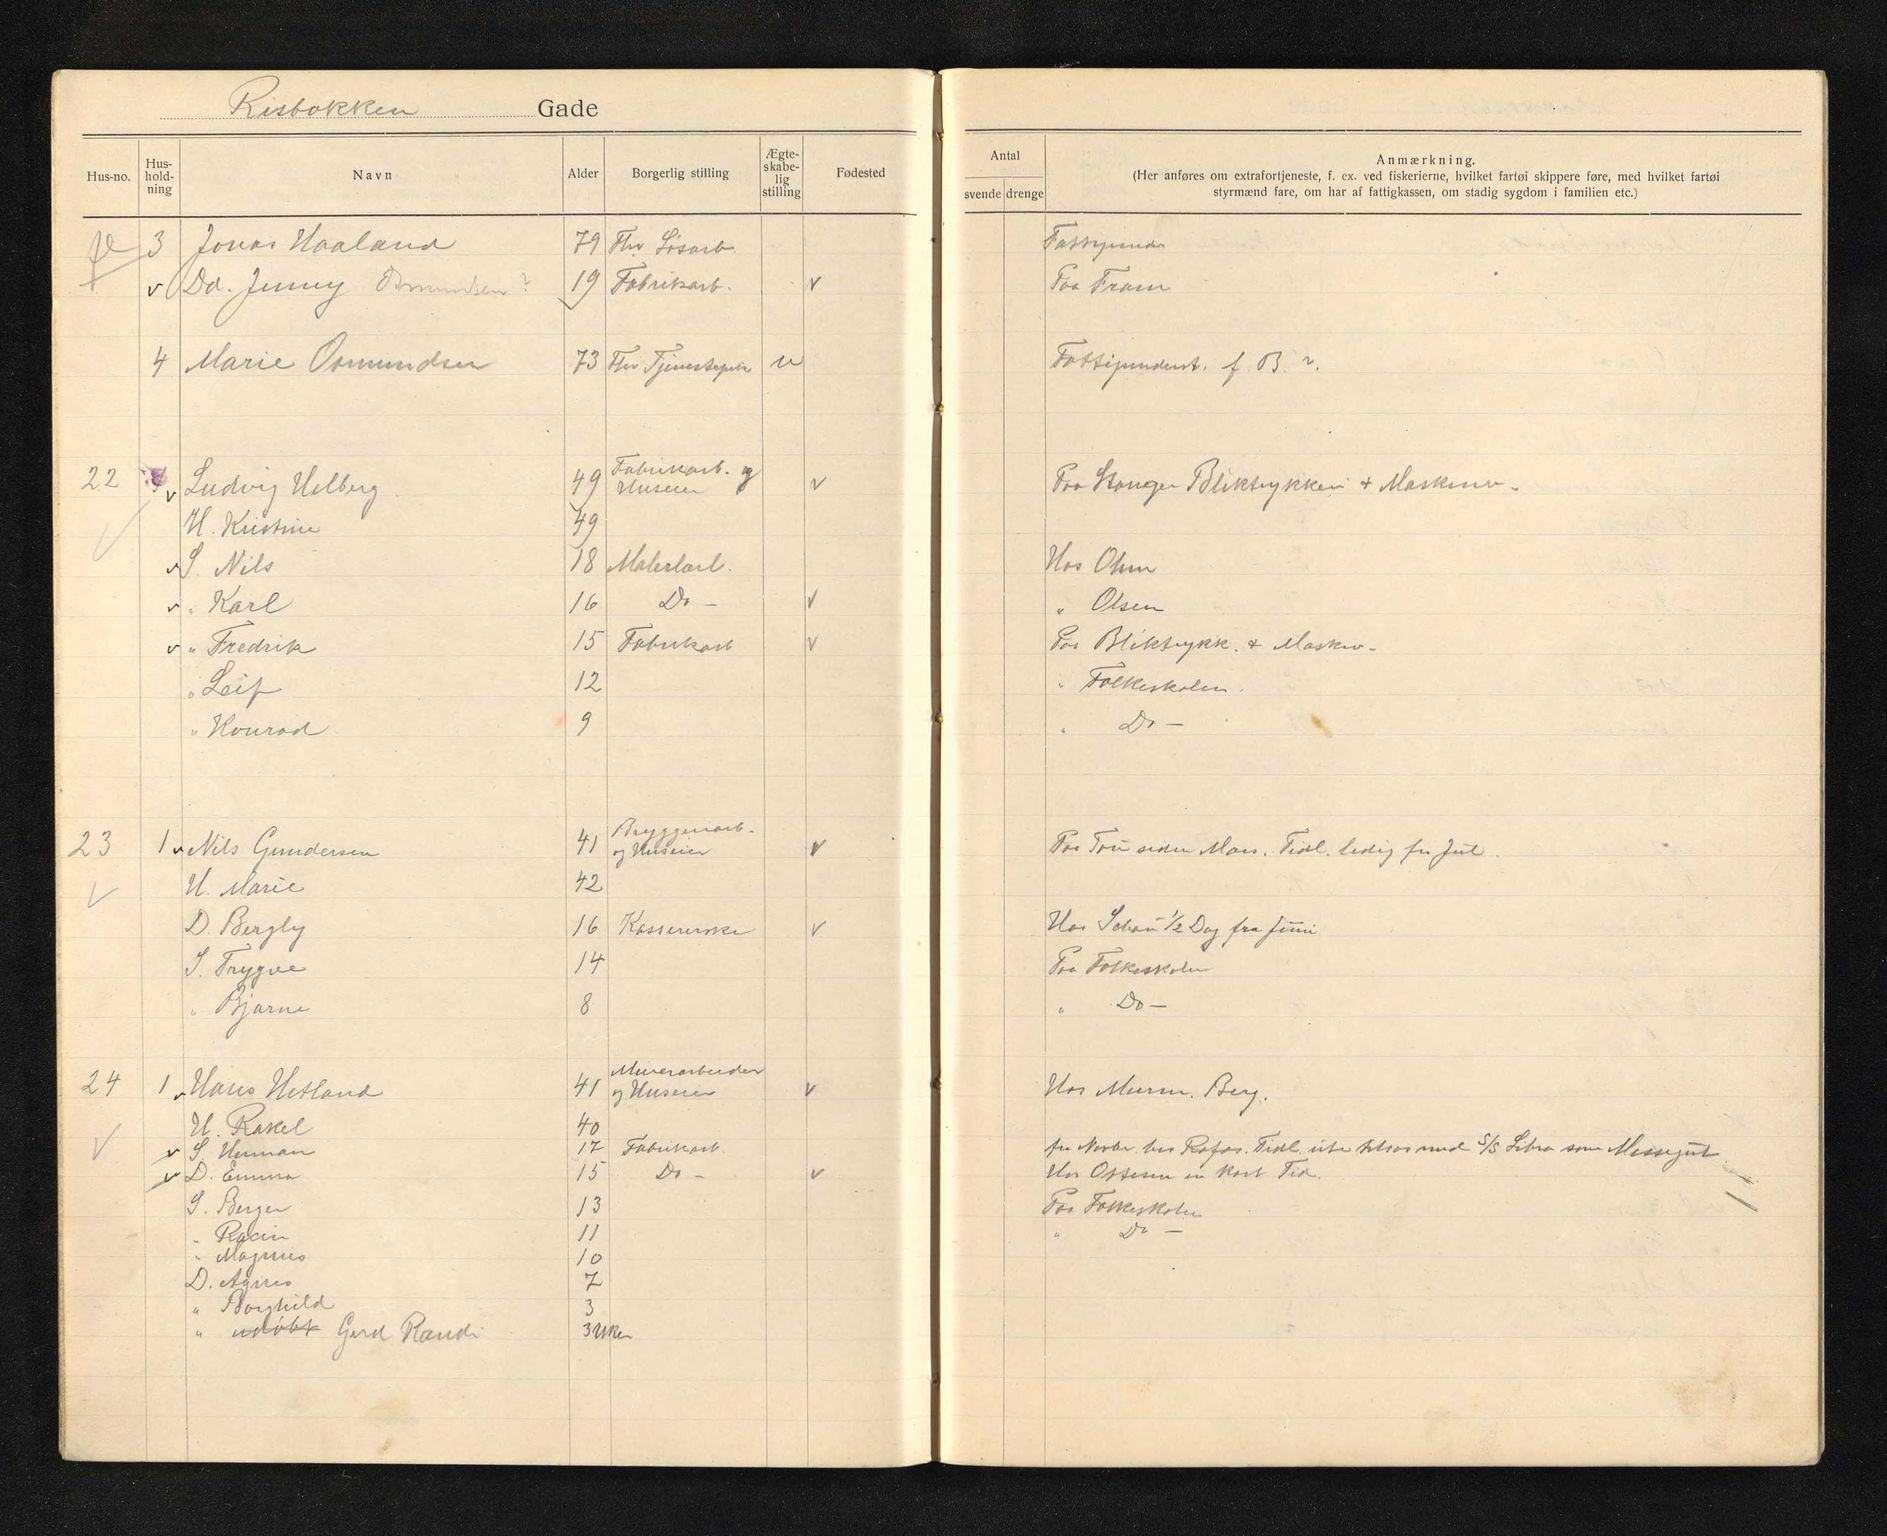 Risbakken Gade
Hus-no. Hus-hold-ning Navn Alder Borgerlig stilling Ægte-skabe-lig stilling Fødested
Antal
svende drenge
Anmærkning.
(Her anføres om extrafortjeneste, f. ex. ved fiskerierne, hvilket fartøi skippere føre, med hvilket fartøi
styrmænd fare, om har af fattigkassen, om stadig sygdom i familien etc.)
3 Jonas Haaland 79 Fhv Løsarb.
Dd. Jenny Osmundsen? 19 Fabrikarb. Paa Fram
4 Marie Osmundsen 73 Fhv u Fattigunderst. f. B. ?.
22 Ludvig Helberg 49 Fabrikarb. og Huseier Paa Stanger Bliktrykkeri + Maskinv.
H. Kristine 49
S. Nils 18 Malerlærl. Hos Ohm
" Karl 16 Do - " Olsen
" Fredrik 15 Fabrikarb Paa Bliktrykk. + Maskv-
" Leif 12 " Folkeskolen.
" Konrad 9 " Do -
23 1 Nils Gundersen 41 Bryggeriarb. og Huseier Paa Tou siden Mars. Tidl. ledig fra Jul.
H. Marie 42
D. Bergly 16 Kassererske Hos Schau 1/2 Dag fra Juni
S. Trygve 14 Paa Folkeskolen
" Bjarne 8 " Do -
24 1 Hans Hetland 41 Murerarbeider og Huseier Hos Murm. Berg.
H. Rakel 40
S. Herman 17 Fabrikarb. fra Novbr. hos Tidl. ute tilsøs med S/S Libra som Messegut
D. Emma 15 Do - Hos Ottesen en kort Tid.
S. Berger 13 Paa Folkeskolen
" Ragin 11 " Do -
" Magnus 10
D. Agnes 7
" Borghild 3
" udøbt Gerd Randi 3 Uker